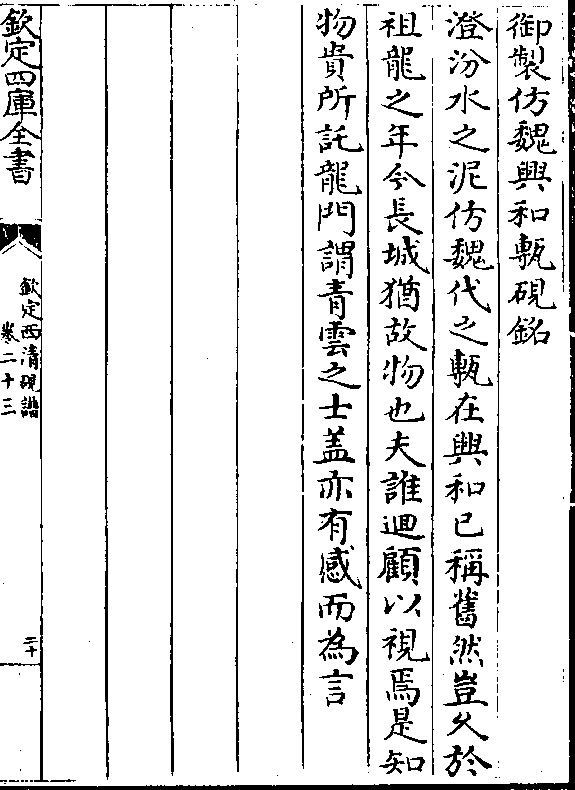 御製仿魏興和甎硯銘
澄汾水之泥仿魏代之甎在興和已稱舊然豈久於
祖龍之年今長城猶故物也夫誰迴顧以視焉是知
物貴所託龍門謂青雲之士盖亦有感而為言
欽定四庫全書
欽定西清硯譜
卷二十三
二十